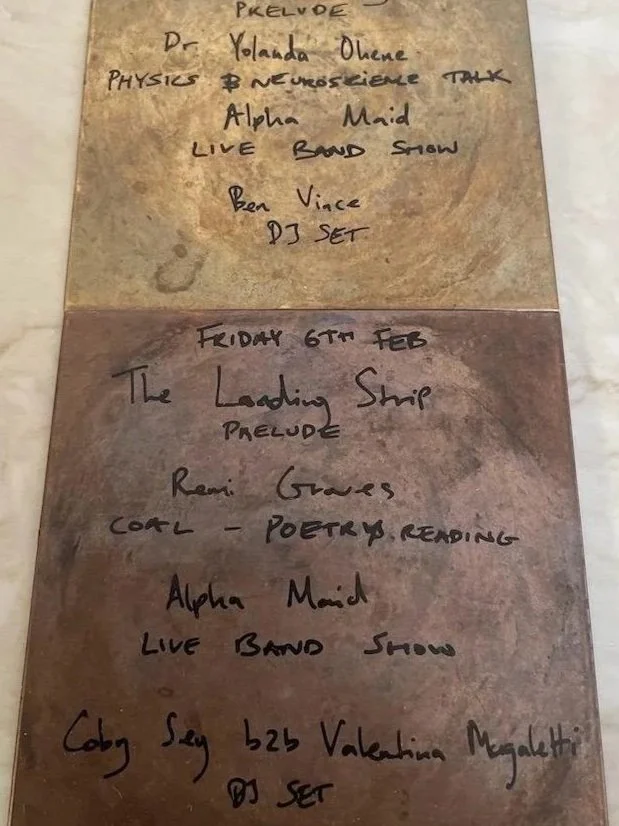 PRELUDE
Dr Yolanda Ohene
PHYSICS & NEUROSCIENCE TALK
Alpha Maid
LIVE BAND SHOW
Ben Vince
DJ SET
FRIDAY 6TH FEB
The Landing Strip
PRELUDE
Remi Graves
COAL - POETRY READING
Alpha Maid
LIVE BAND SHOW
Coby Sey b2b Valentina Magaletti
DJ SET